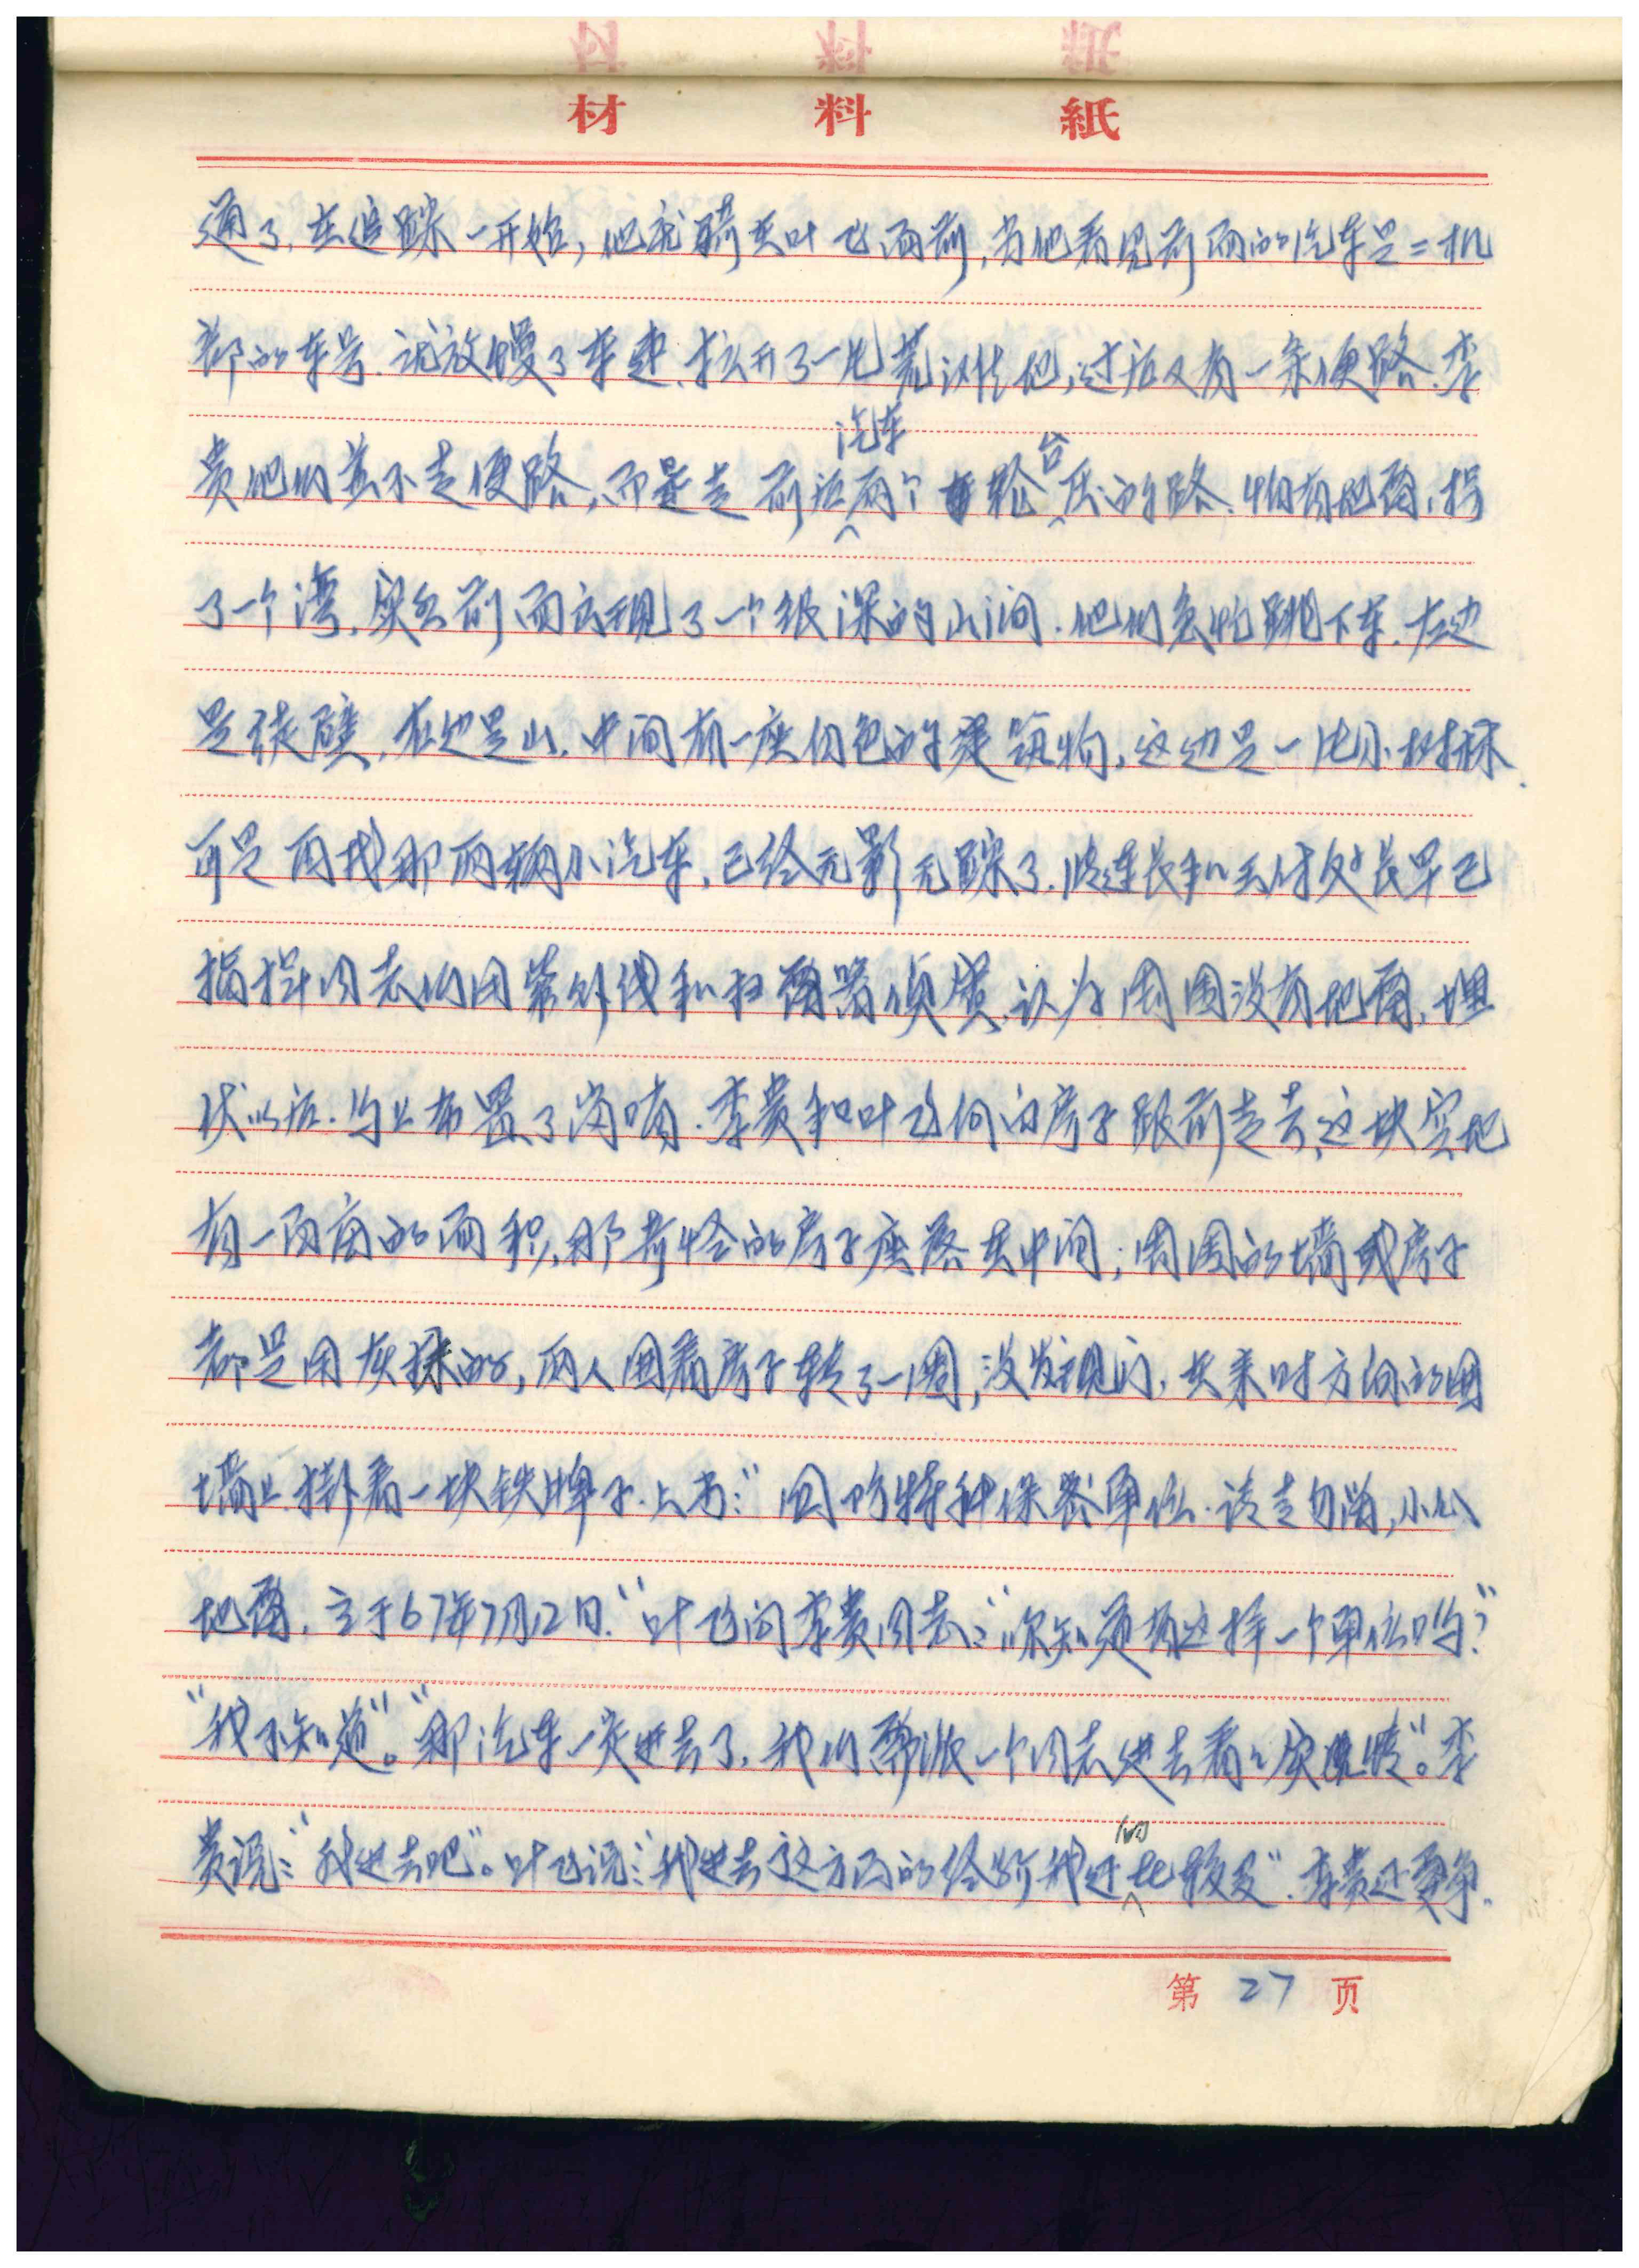 材料紙
通了，在追踪一开始，他就骑在叶飞面前，当他看见前面的汽车是二机
部的车号，就放慢了车速，拉开了一片荒沙性地，过后又有一条便路，李
贵他们并不走便路，而是走前后汽车两个轮台压的路，怕有地雷，拐
了一个湾，突然前面出现了一个很深的山涧，他们急忙跳下车，左边
是徒壁，右边是山，中间有一座白色的建筑物，这边是一片小树林，
可是再找那两辆小汽车，已经无影无踪了，连长和付处长早已
指挥同志们用紫外线和扫雷器侦察，认为周围没有地雷，埋
伏以后，马上布置了岗哨，李贵和叶飞向的房子跟前走去，这块空地
有一两亩的面积，那奇怪的房子座落在中间，周围的墙或房子
都是用灰抹的，两人围着房子转了一周，没发现门，在来时方向的围
墙上掛着一块铁牌子，上书：“国防特种保密单位，请走勿湾，小心
地雷，立于67年7月12日。”叶飞问李贵同志：“你知道有这样一个单位吗？”
“我不知道”。“那汽车一定进去了，我们要派一个同志进去看看实情”。李
贵说：“我进去吧”。叶飞说：“我进去，这方面的经验我还比较多”，李贵还要争，
第27页